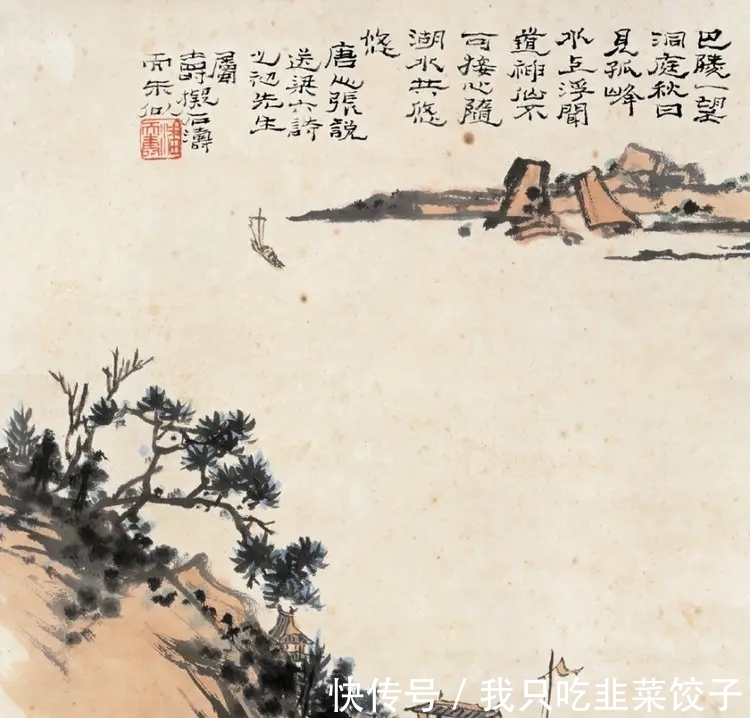 巴陵一望
洞庭秋日
見孤峰
水上浮聞
道神仙不
可接心隨
湖水共悠
悠
唐張說
送梁六詩
先生
屬
壽擬石濤
而未似
快传号 / 我只吃韭菜饺子